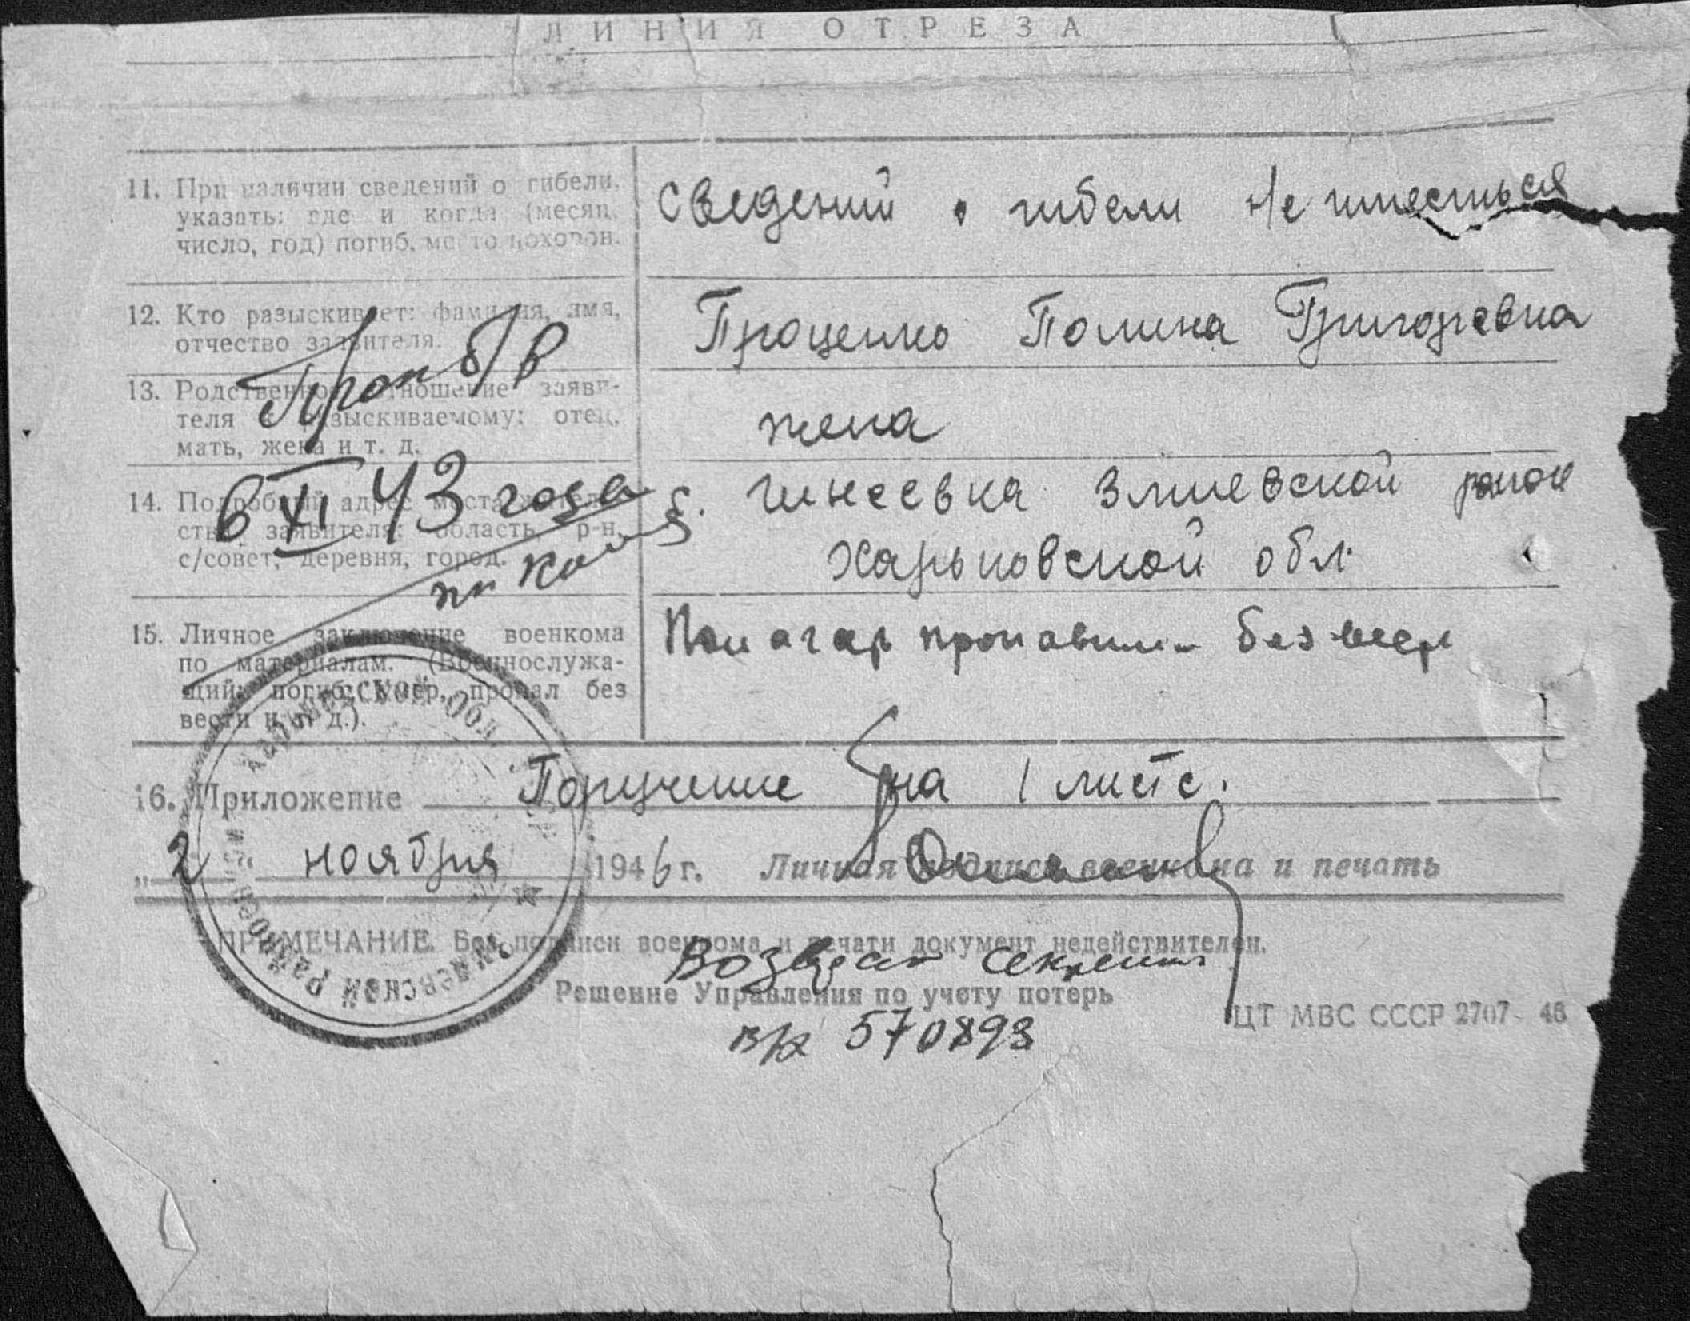 ЛИНИЯ ОТРЕЗА
11. При наличии сведений о гибели,
указать: где и когда (месяц,
число, год) погиб, место похорон.
Сведений о гибели не имееться
12. Кто разыскивает: фамилия, имя,
отчество заявителя.
Проценко Полина Григорьевна
Проп б/в
13. Родственное отношение заяви-
теля к разыскиваемому: отец,
мать, жена и т. д.
жена
6 XI 43 года
14. Подробный адрес места житель-
ства заявителя: область, р-н,
с/совет, деревня, город.
Змиевской район
Харьковской обл.
15. Личное заключение военкома
по материалам. (Военнослужа-
щий: погиб, умер, пропал без
вести и т. д.).
пропавшим без вест
16. Приложение Поручение на 1 листе.
„2 " ноября 1946 г. Личная подпись военкома и печать
ПРИМЕЧАНИЕ. Без подписи военкома и печати документ недействителен.
Возврат
Решение Управления по учету потерь
570893
ЦТ МВС СССР 2707-46